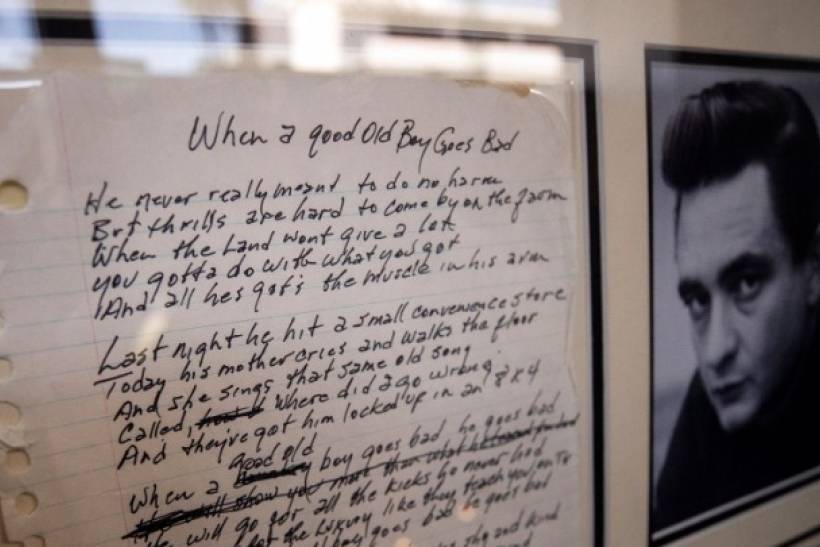 When a good Old Boy Goes Bad
He never really meant to do no harm
But thrills are hard to come by on the farm
When the Land wont give a lot
you gotta do with what you got
And all hes got's the muscle in his arm
Last night he hit a small convenience store
Today his mother cries and walks the floor
And she sings that same old song
Called, where did I go wrong
And they've got him locked up in an 8 x 4
good old
When a boy goes bad, he goes bad
will show you more than what
He will go for all the kicks he never had
the Luxury like they teach you on TV
boy goes bad he goes bad
shy and kind